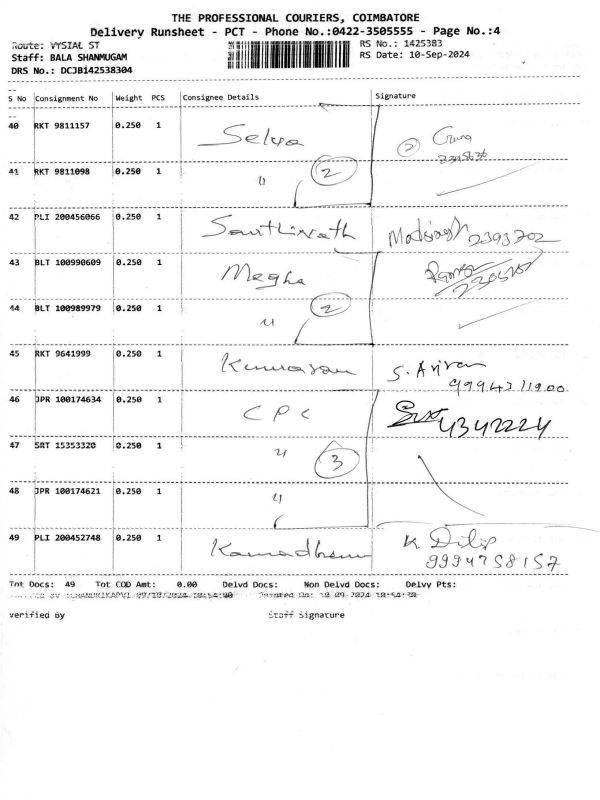 THE PROFESSIONAL COURIERS, COIMBATORE
Delivery Runsheet - PCT - Phone No.:0422-3505555 - Page No.:4
Route: VYSIAL ST
RS No.: 1425383
Staff: BALA SHANMUGAM
RS Date: 10-Sep-2024
DRS No.: DCJB142538304
S No Consignment No Weight PCS Consignee Details Signature
40 RKT 9811157 0.250 1 Selva
41 RKT 9811098 0.250 1 " 2
42 PLI 200456066 0.250 1 2393702
43 BLT 100990609 0.250 1 Megha
44 BLT 100989979 0.250 1 " 2
45 RKT 9641999 0.250 1 Kumaran S.
46 JPR 100174634 0.250 1 CPC 4342224
47 SRT 15353320 0.250 1 " 3
48 JPR 100174621 0.250 1 "
49 PLI 200452748 0.250 1 Kamadhenu K Dilip
9994758157
Tot Docs: 49 Tot COD Amt: 0.00 Delvd Docs: Non Delvd Docs: Delvy Pts:
verified By Staff Signature